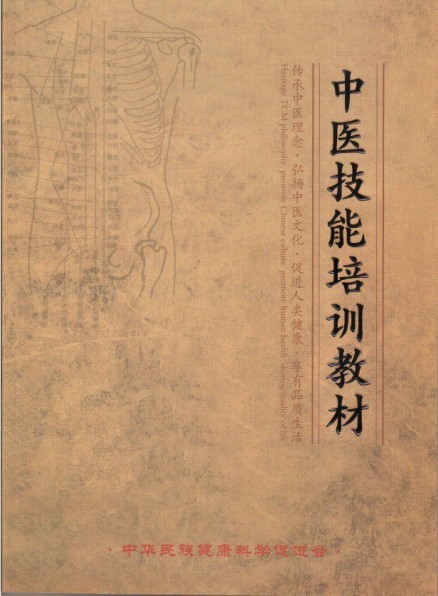 中医技能培训教材
传承中医理念·弘扬中医文化·促进人类健康·享有品质生活
Heritage TCM philosophy promote Chinese culture promote human health
·中华民族健康科学促进会